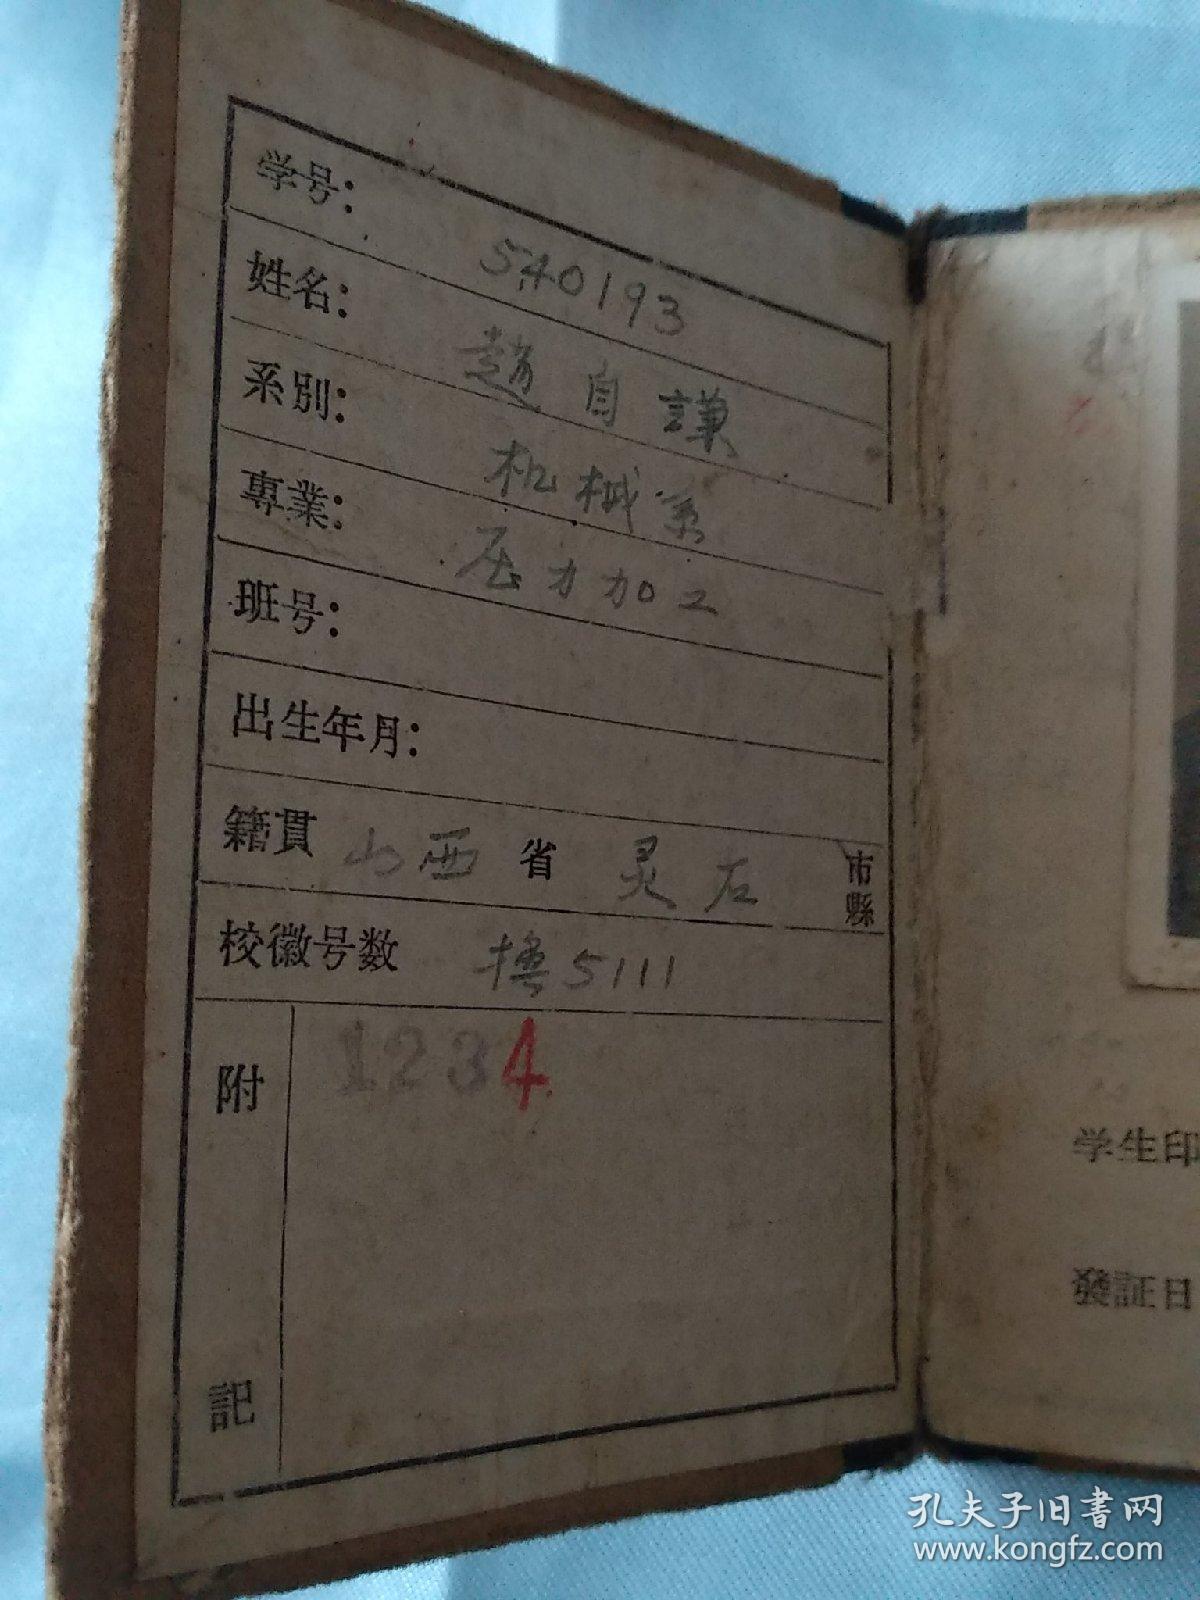 学号: 540193
姓名: 趙自謙
系別: 机械系
專業: 压力加工
班号:
出生年月:
籍貫 山西 省 灵石 市縣
校徽号数 5111
附記 1234
学生印
發証日
孔夫子旧書网
www.kongfz.com